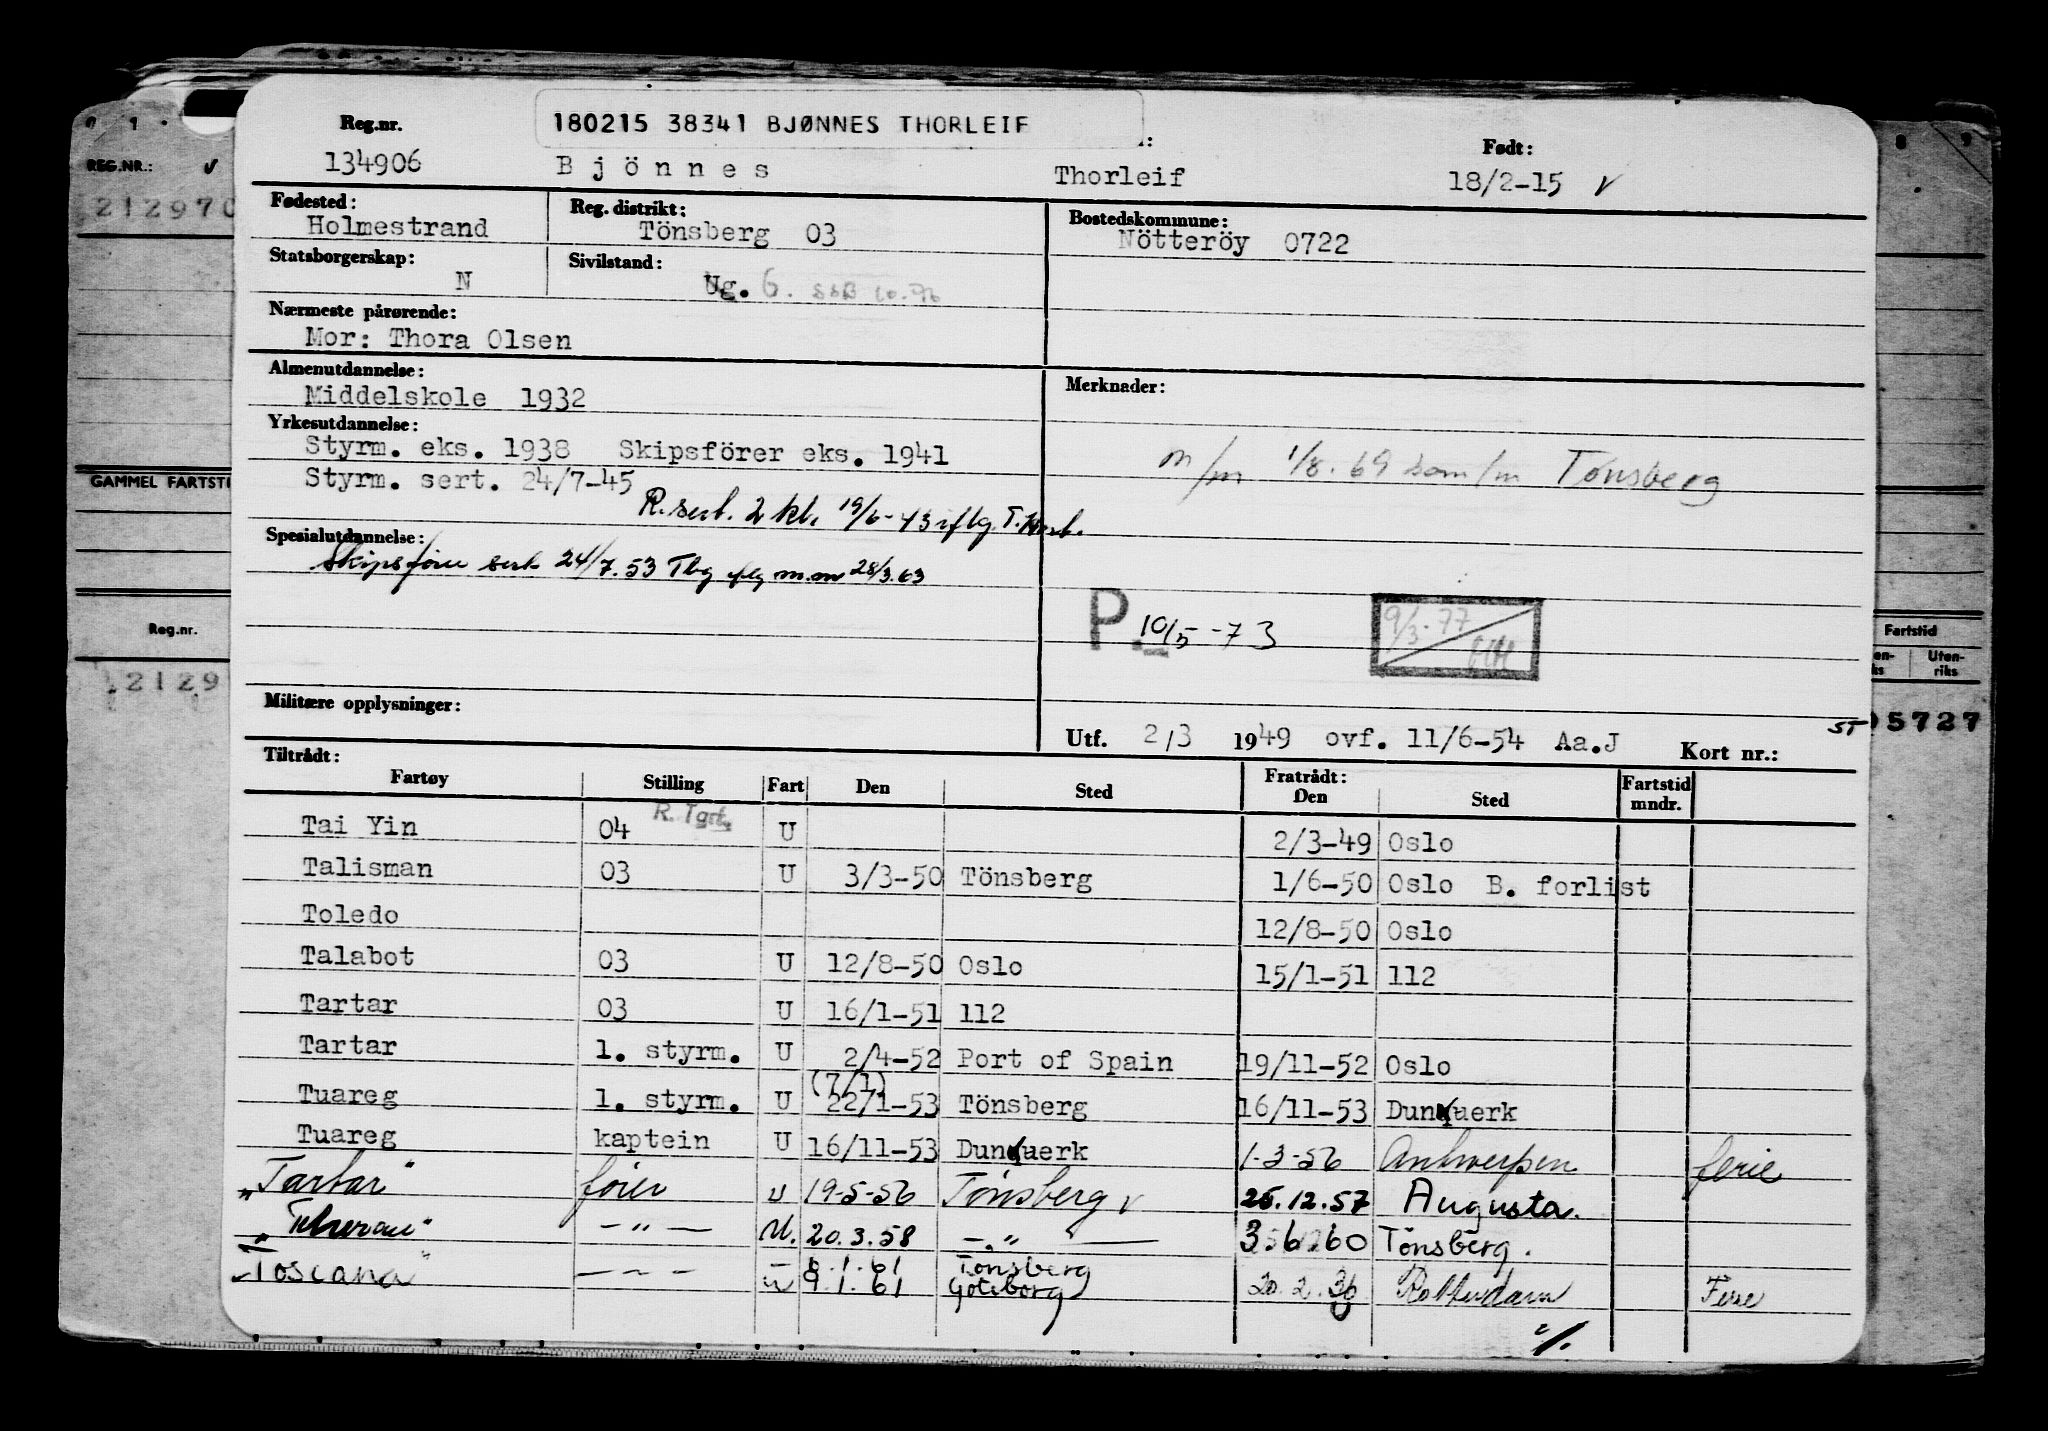 180215 38341 BJØNNES THORLEIF
Reg.nr. Født:
134906 Bjönnes Thorleif 18/2-15 v
Fødested: Reg. distrikt: Bostedskommune:
Holmestrand Tönsberg 03 Nötteröy 0722
Statsborgerskap: Sivilstand:
N Ug. G.
Nærmeste pårørende:
Mor: Thora Olsen
Almenutdannelse: Merknader:
Middelskole 1932
Yrkesutdannelse:
Styrm. eks. 1938 Skipsförer eks. 1941
m/m 1/8. 69 som/m Tønsberg
Styrm. sert. 24/7-45
R. sert. 2 kl. 19/6-43
Spesialutdannelse:
24/7.53 Tbg m.m 28/3.63
P. 10/5-73 9/3-77
Militære opplysninger:
Utf. 2/3 1949 ovf. 11/6-54 Aa.J Kort nr.:
Tiltrådt: Fratrådt:
Fartøy Stilling Fart Den Sted Den Sted Fartstid mndr.
R. Tgrf.
Tai Yin 04 U 2/3-49 Oslo
Talisman 03 U 3/3-50 Tönsberg 1/6-50 Oslo B. forlist
Toledo 12/8-50 Oslo
Talabot 03 U 12/8-50 Oslo 15/1-51 112
Tartar 03 U 16/1-51 112
Tartar 1. styrm. U 2/4-52 Port of Spain 19/11-52 Oslo
(7/1)
Tuareg 1. styrm. U 22/1-53 Tönsberg 16/11-53 Dunkuerk
Tuareg kaptein U 16/11-53 Dunkuerk 1-3-56 Antwerpen ferie
"Tartar" fører u 19-5-56 Tønsberg v 26.12.57 Augusta.
"Teheran" —"— U. 20.3.58 —"— 3.6.60 Tønsberg.
"Toscana" — — — 8.1.61 Tønsberg
u 9.1.61 Gøteborg 20.2.36 Rotterdam Ferie
REG.NR.: v
212970
GAMMEL FARTSTI
Reg.nr.
2129
Fartstid
Uten-
riks
ST
05727